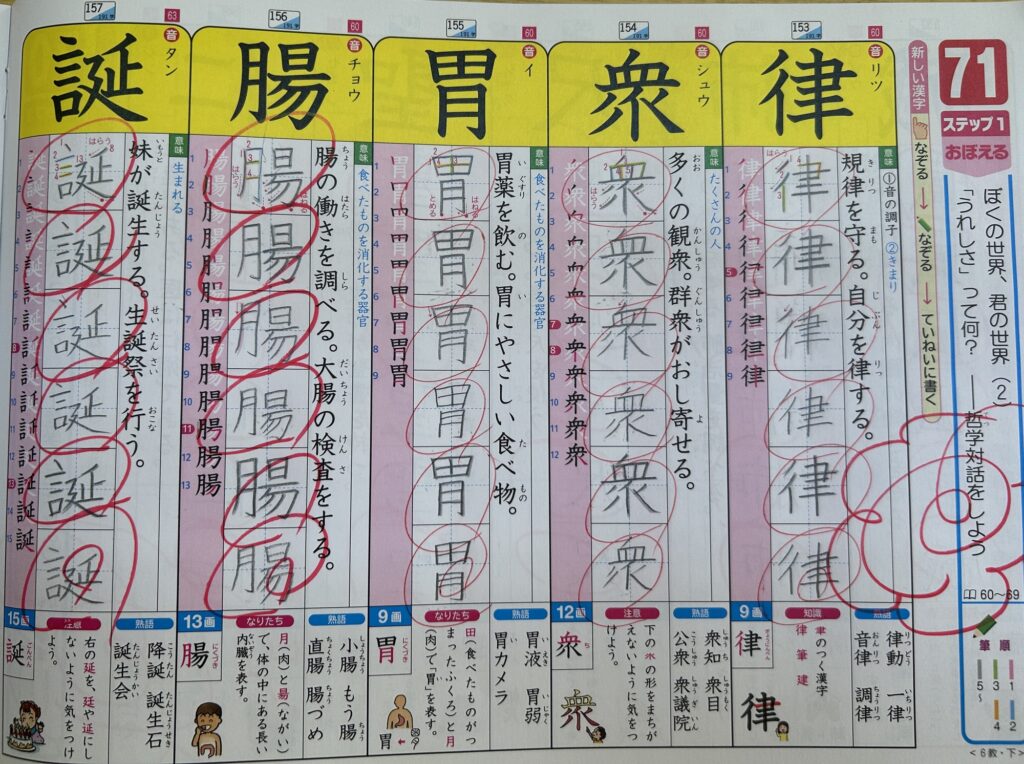 71
ステップ1
おぼえる
ぼくの世界、君の世界(2)
「うれしさ」って何? ――哲学対話をしよう
60〜69
筆順
1 2 3 4 5〜
<6教・下>
新しい漢字
なぞる→なぞる→ていねいに書く
153
191字
60
音 リツ
律
意味 ①音の調子 ②きまり
規律を守る。自分を律する。
律
律
律
律
律
律
9画
律
知識
聿のつく漢字
律 筆 建
熟語
律動 一律
音律 調律
154
191字
60
音 シュウ
衆
意味 たくさんの人
多くの観衆。群衆がおし寄せる。
はらう
衆
衆
衆
衆
衆
衆
12画
衆
ち
注意
下の氺の形をまちがえないように気をつけよう。
熟語
衆知 衆目
公衆 衆議院
155
191字
60
音 イ
胃
意味 食べたものを消化する器官
胃薬を飲む。胃にやさしい食べ物。
はねる
とめる
胃
胃
胃
胃
胃
胃
9画
胃
にくづき
なりたち
田(食べたものがつまったふくろ)と月(肉)で「胃」を表す。
熟語
胃液 胃弱
胃カメラ
156
191字
60
音 チョウ
腸
意味 食べたものを消化する器官
腸の働きを調べる。大腸の検査をする。
はらう
腸
腸
腸
腸
腸
腸
13画
腸
にくづき
なりたち
月(肉)と昜(ながい)で、体の中にある長い内臓を表す。
熟語
小腸 もう腸
直腸 腸づめ
157
191字
63
音 タン
誕
意味 生まれる
妹が誕生する。生誕祭を行う。
はらう
誕
誕
誕
誕
誕
誕
15画
誕
ごんべん
注意
右の延を、廷や延にしないように気をつけよう。
熟語
降誕 誕生石
誕生会